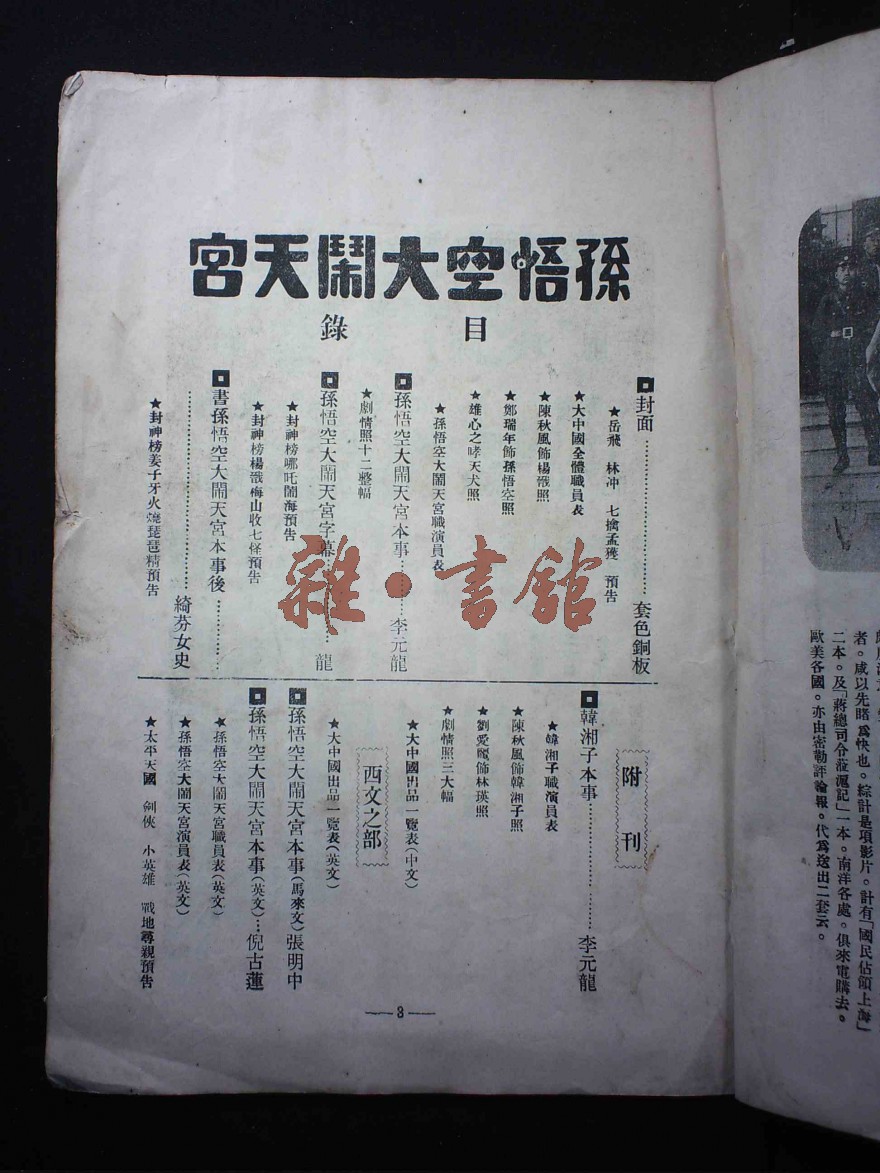 孫悟空大鬧天宮
目錄
封面……………………套色銅板
★岳飛 林冲 七擒孟獲 預告
★大中國全體職員表
★陳秋風飾楊戩照
★鄭瑞年飾孫悟空照
★雄心之哮天犬照
★孫悟空大鬧天宮職演員表
孫悟空大鬧天宮本事…………李元龍
★劇情照十二整幅
孫悟空大鬧天宮字幕…………龍
★封神榜哪吒鬧海預告
★封神榜楊戩梅山收七怪預告
書孫悟空大鬧天宮本事後…………
……………………綺芬女史
★封神榜姜子牙火燒琵琶精預告
附刊
韓湘子本事……………………李元龍
★韓湘子職演員表
★陳秋風飾韓湘子照
★劉愛麗飾林瑛照
★劇情照三大幅
★大中國出品一覽表(中文)
西文之部
★大中國出品一覽表(英文)
孫悟空大鬧天宮本事(馬來文)張明中
孫悟空大鬧天宮本事(英文)…倪古蓮
★孫悟空大鬧天宮職員表(英文)
★孫悟空大鬧天宮演員表(英文)
★太平天國 劍俠 小英雄 戰地尋親預告
—3—
雜·書館
者。咸以先睹爲快也。綜計是項影片。計有「國民佔領上海」
二本。及「蔣總司令蒞滬記」一本。南洋各處。俱來電購去。
歐美各國。亦由密勒評論報。代爲送出二套云。